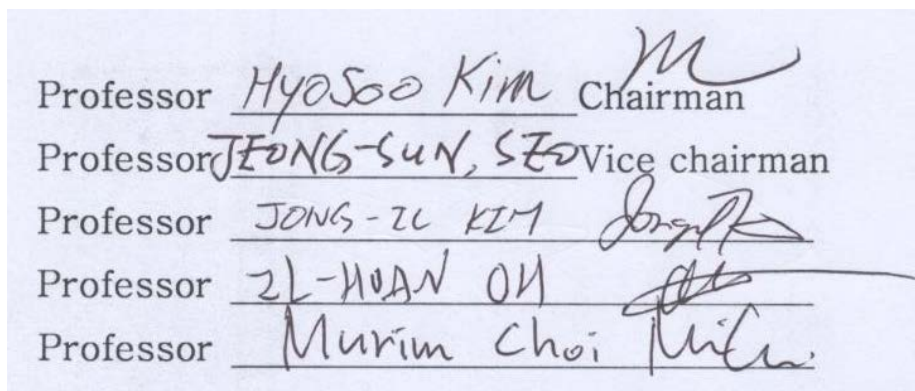 Professor HyoSoo Kim Chairman
Professor JEONG-SUN, SEO Vice chairman
Professor JONG-IL KIM
Professor IL-HOAN OH
Professor Murim Choi